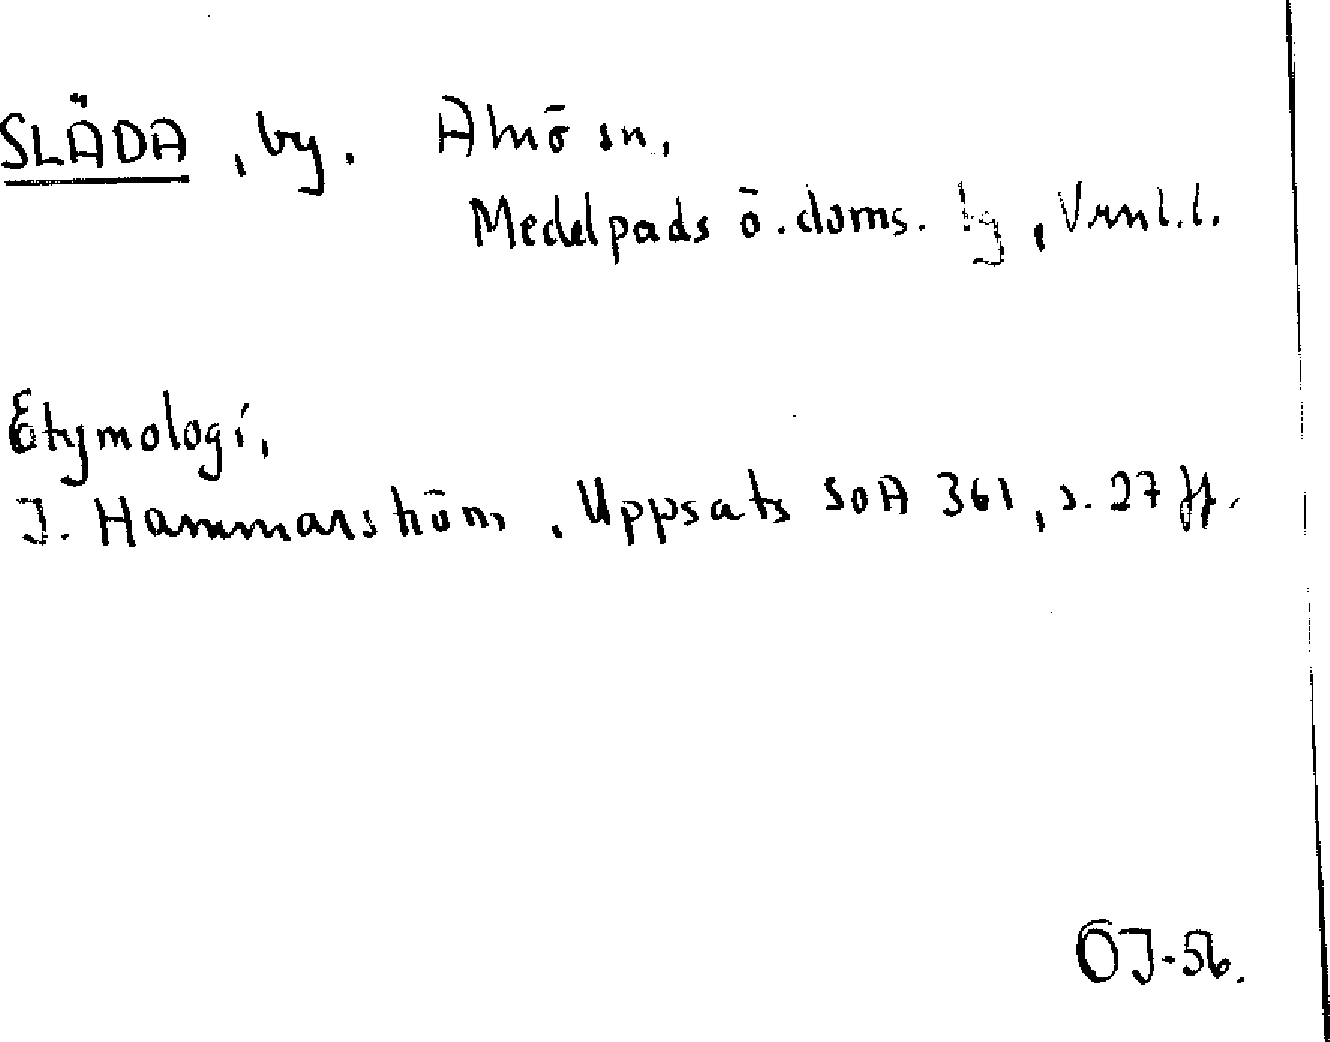 SLÄDA, by. Alnö sn,
Medelpads ö. doms. tg, Vrnl.l.
Etymologi,
J. Hammarström, Uppsats SOA 361, s. 27 ff.
ÖJ-56.